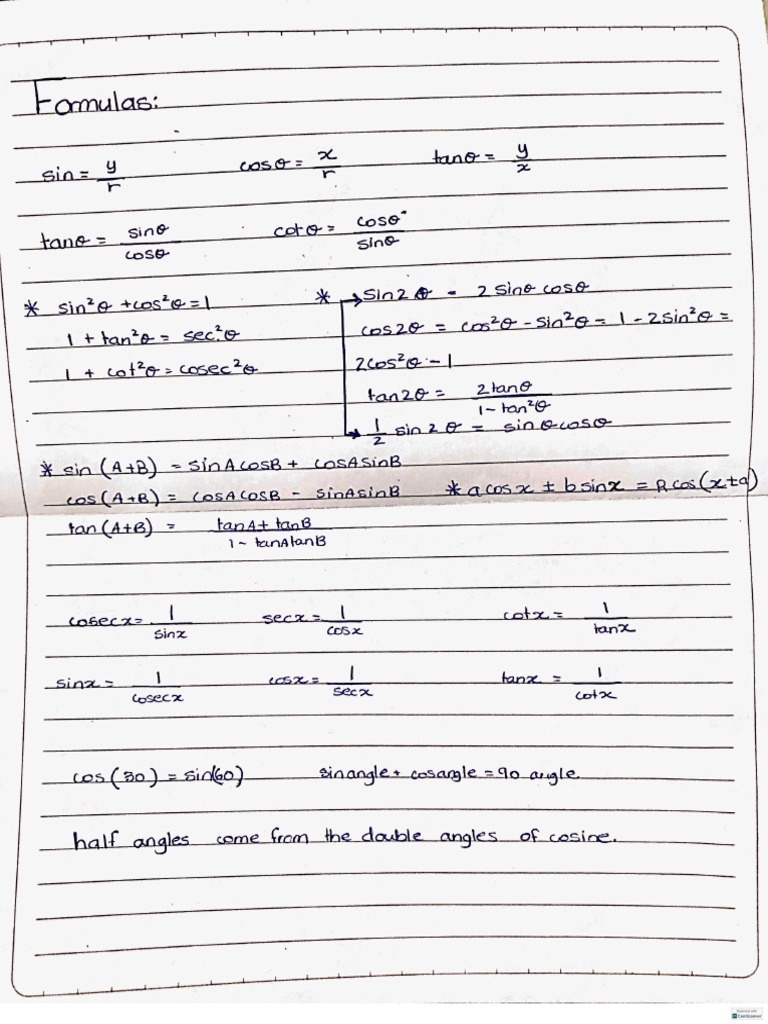 Formulas:
sin = y/r cosθ = x/r tanθ = y/x
tanθ = sinθ/cosθ cotθ = cosθ/sinθ
* sin²θ + cos²θ = 1 * → sin2θ = 2 sinθ cosθ
1 + tan²θ = sec²θ cos2θ = cos²θ - sin²θ = 1 - 2sin²θ =
1 + cot²θ = cosec²θ 2cos²θ - 1
tan2θ = 2tanθ/1 - tan²θ
→ 1/2 sin2θ = sinθcosθ
* sin (A+B) = sinAcosB + cosAsinB
cos(A+B) = cosAcosB - sinAsinB * a cos x ± b sinx = R cos(x±a)
tan(A+B) = tanA + tanB/1 - tanAtanB
cosecx = 1/sinx secx = 1/cosx cotx = 1/tanx
sinx = 1/cosecx cosx = 1/secx tanx = 1/cotx
cos(30) = sin(60) sinangle + cosangle = 90 angle
half angles come from the double angles of cosine.
CamScanner